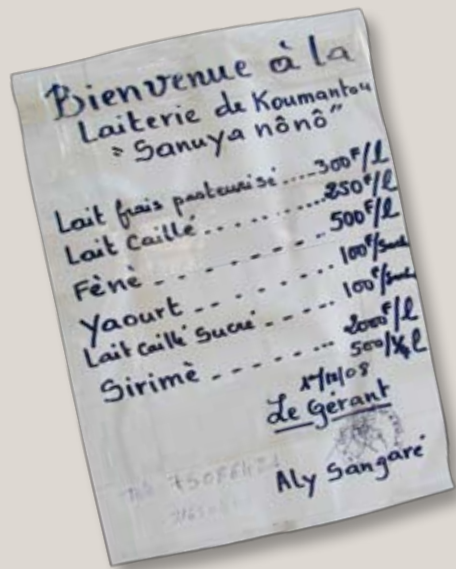 Bienvenue à la
Laiterie de Koumantou
"Sanuya nônô"
Lait frais pasteurisé....300F/l
Lait Caillé.........250F/l
Fènè - - - - - - - - 500F/l
Yaourt - - - - - - - 100F/Sachet
Lait caillé Sucré - - - - - 100F/Sachet
Sirimè - - - - - - - 2000F/l
500/¼ l
Le Gérant
Aly Sangaré